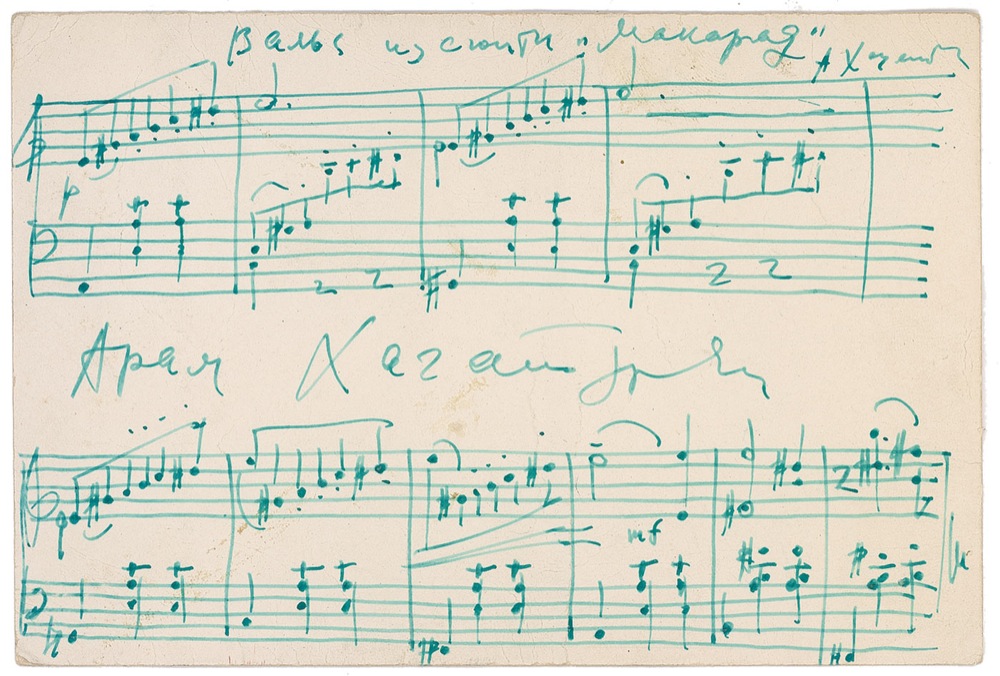 Вальс из сюиты „Маскарад“
p
Арам Хачатурян
mf